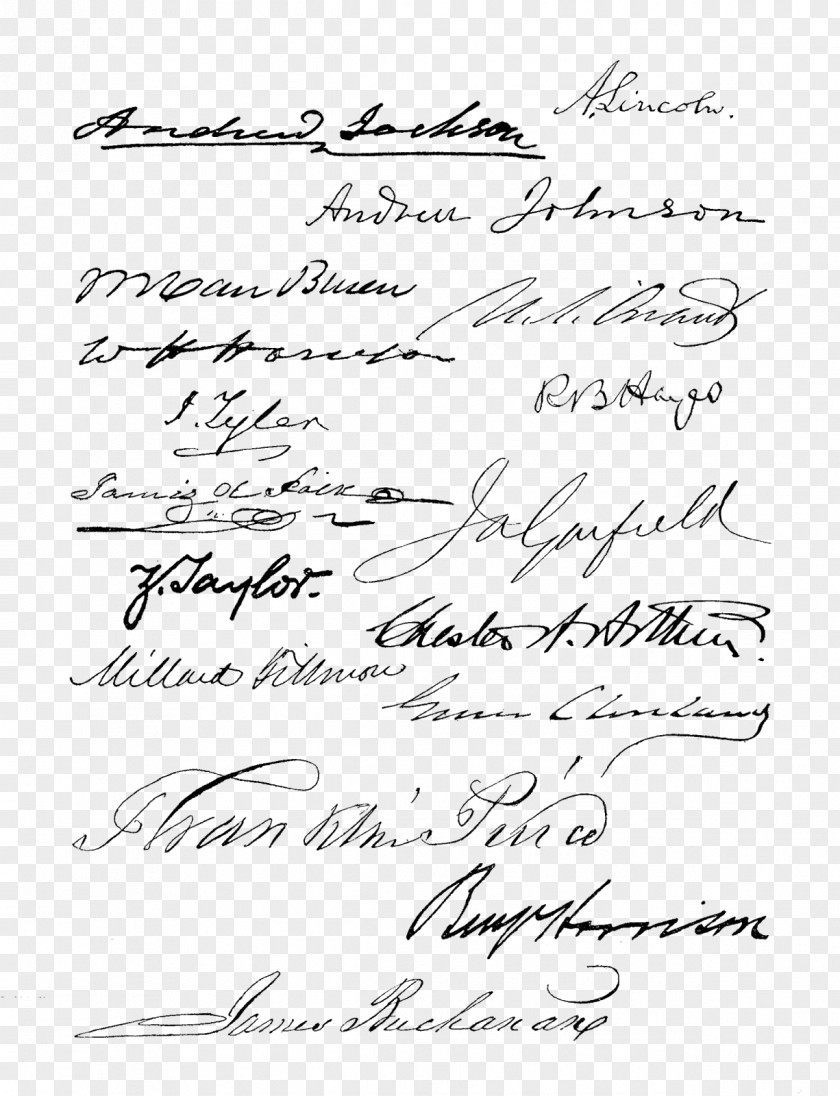 Andrew Jackson
A. Lincoln.
Andrew Johnson
M Van Buren
U. S. Grant
W H Harrison
R B Hayes
J. Tyler
James K Polk
Ja Garfield
Z. Taylor.
Chester A. Arthur.
Millard Fillmore
Grover Cleveland
Franklin Pierce
Benj Harrison
James Buchanan